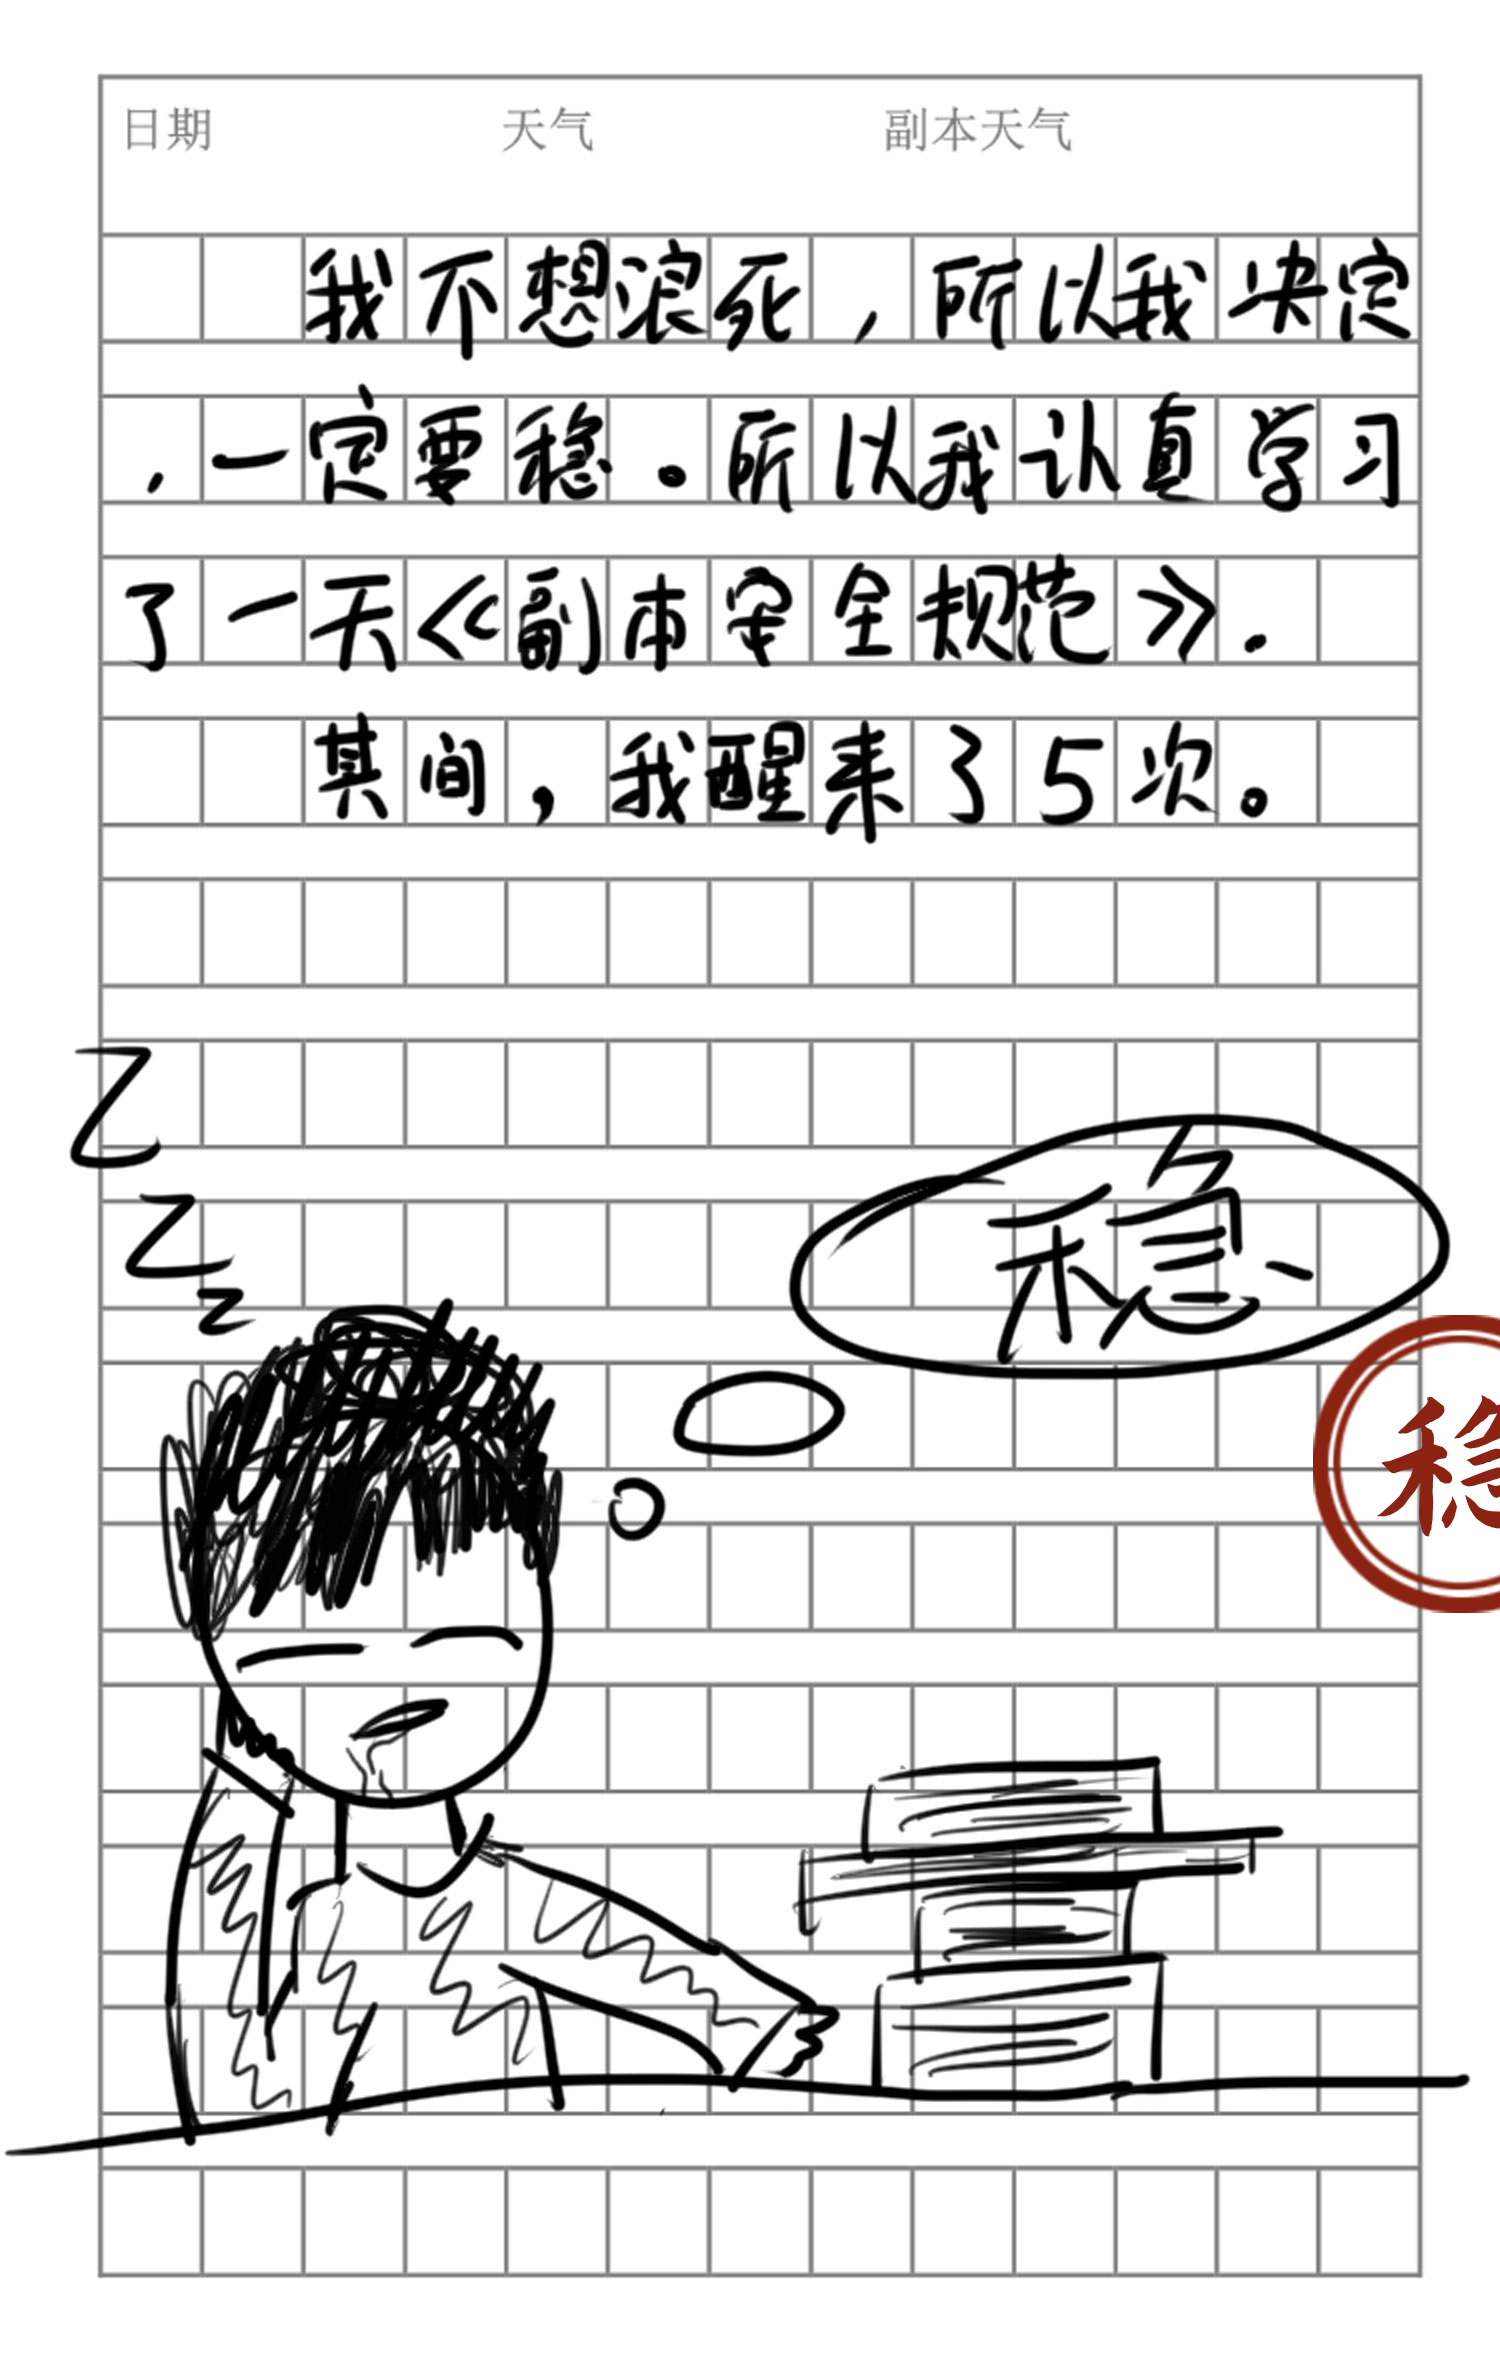 日期 天气 副本天气
我不想浪死，所以我决定
，一定要稳。所以我认真学习
了一天《副本安全规范》.
其间，我醒来了5次。
Z
Z
z
稳
稳